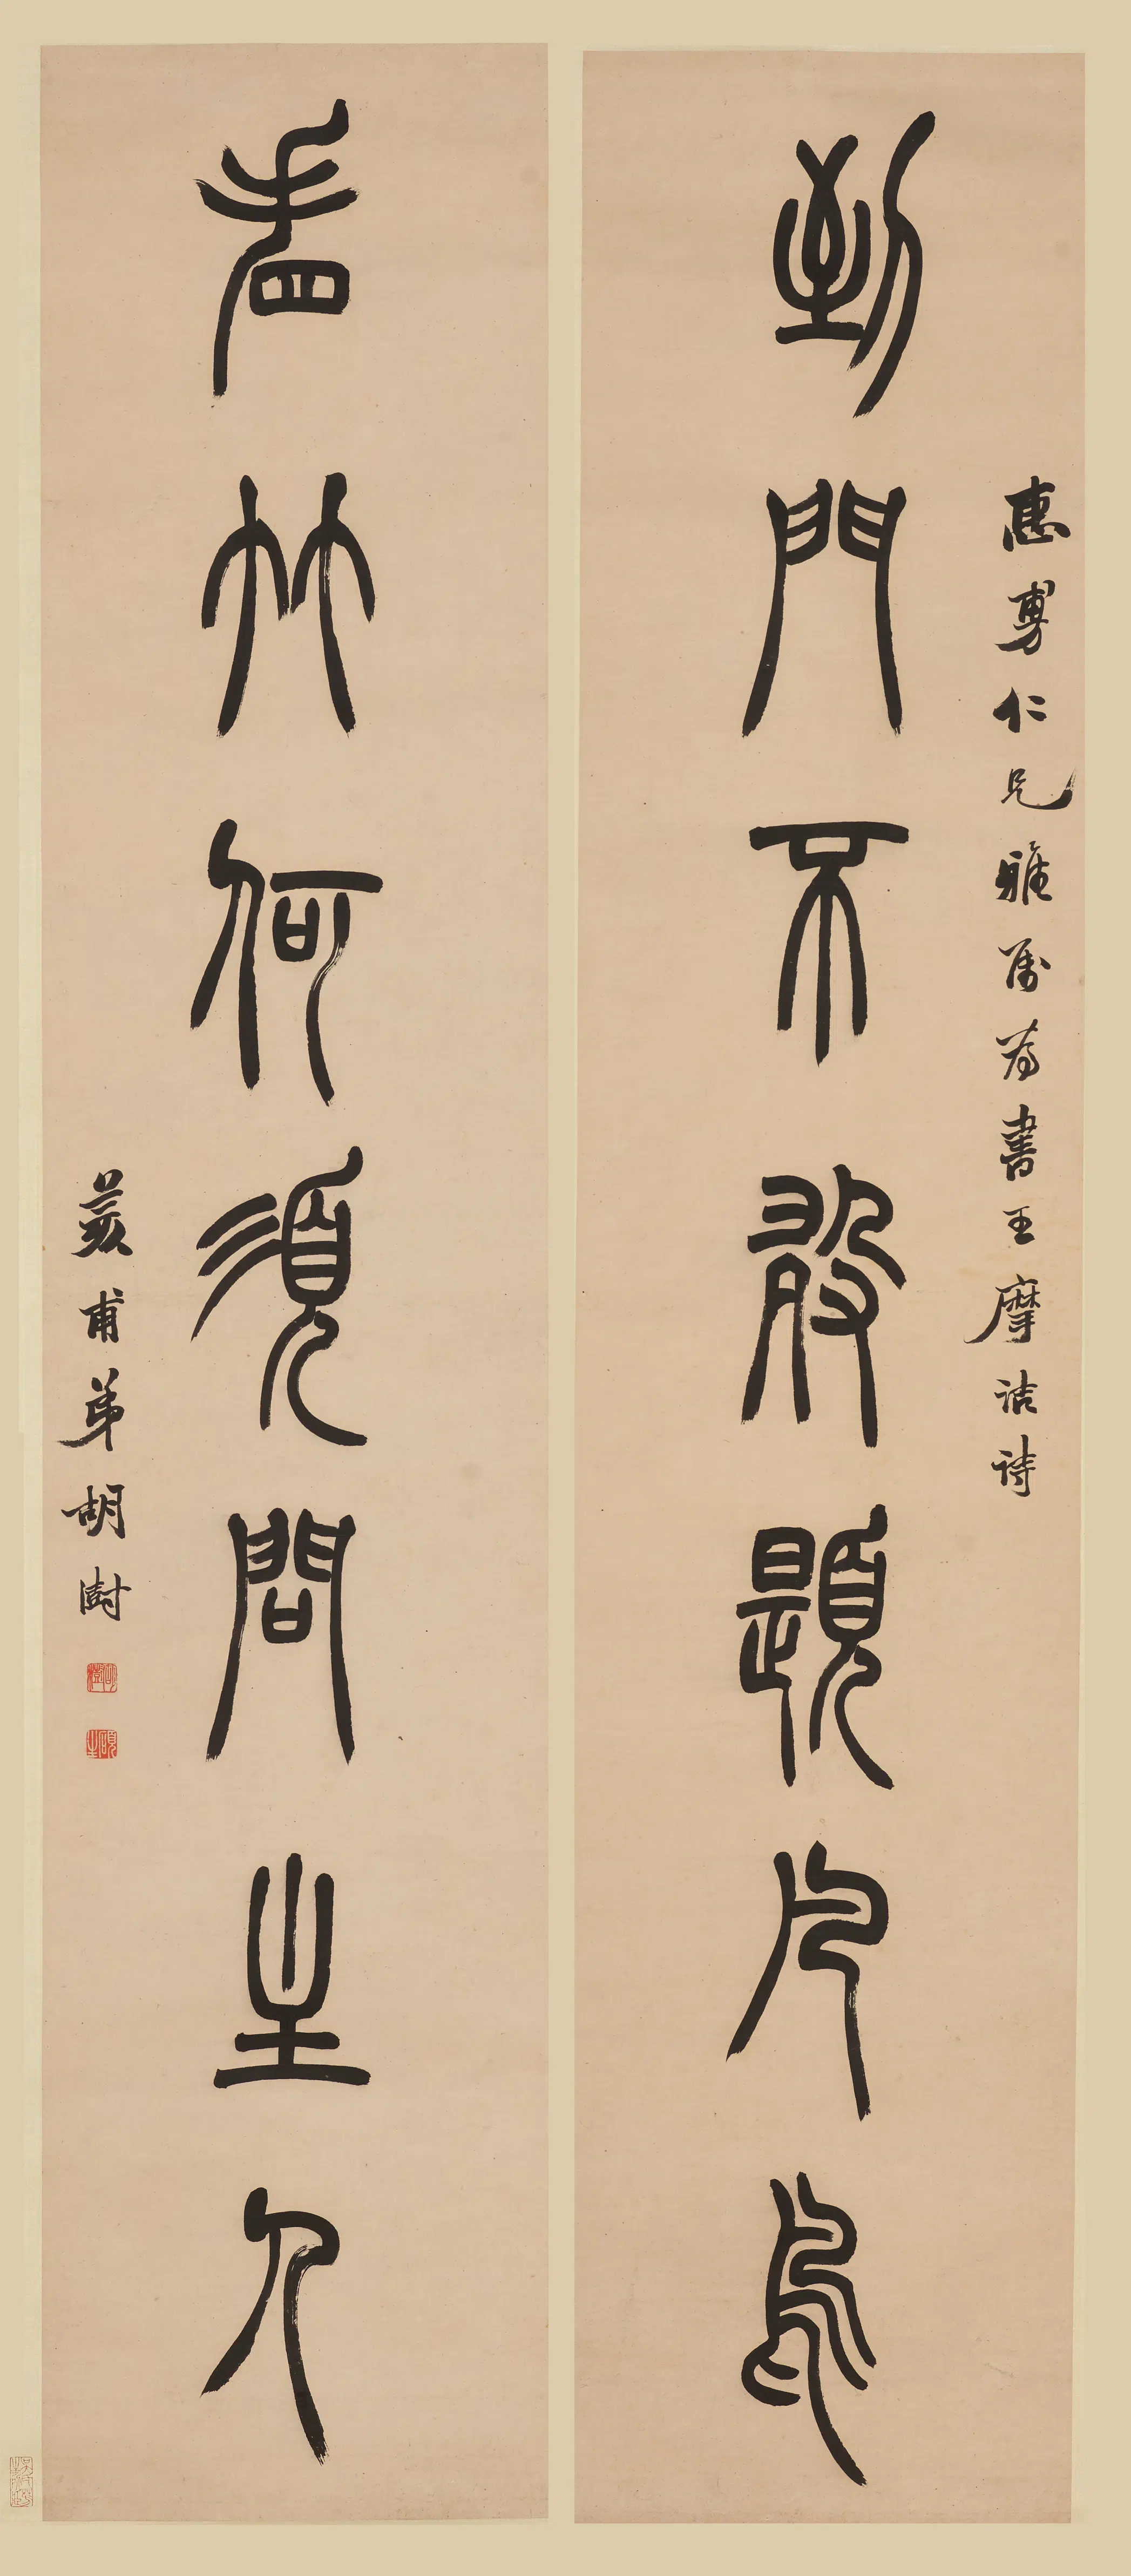 到門不敢題凡鳥
惠勇仁兄雅属為書王摩詰詩
看竹何須問主人
荄甫弟胡澍